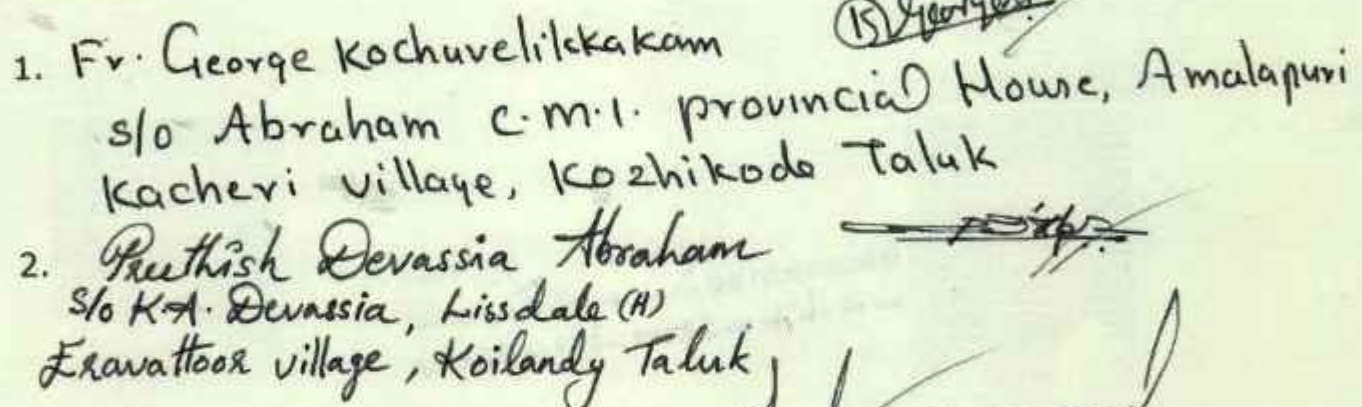 1. Fr. George Kochuvelikkakam
s/o Abraham C.M.I. provincial House, Amalapuri
Kacheri village, Kozhikode Taluk
2. Preethish Devassia Abraham
S/o K.A. Devassia, Lissdale (H)
Eravattoor village, Koilandy Taluk